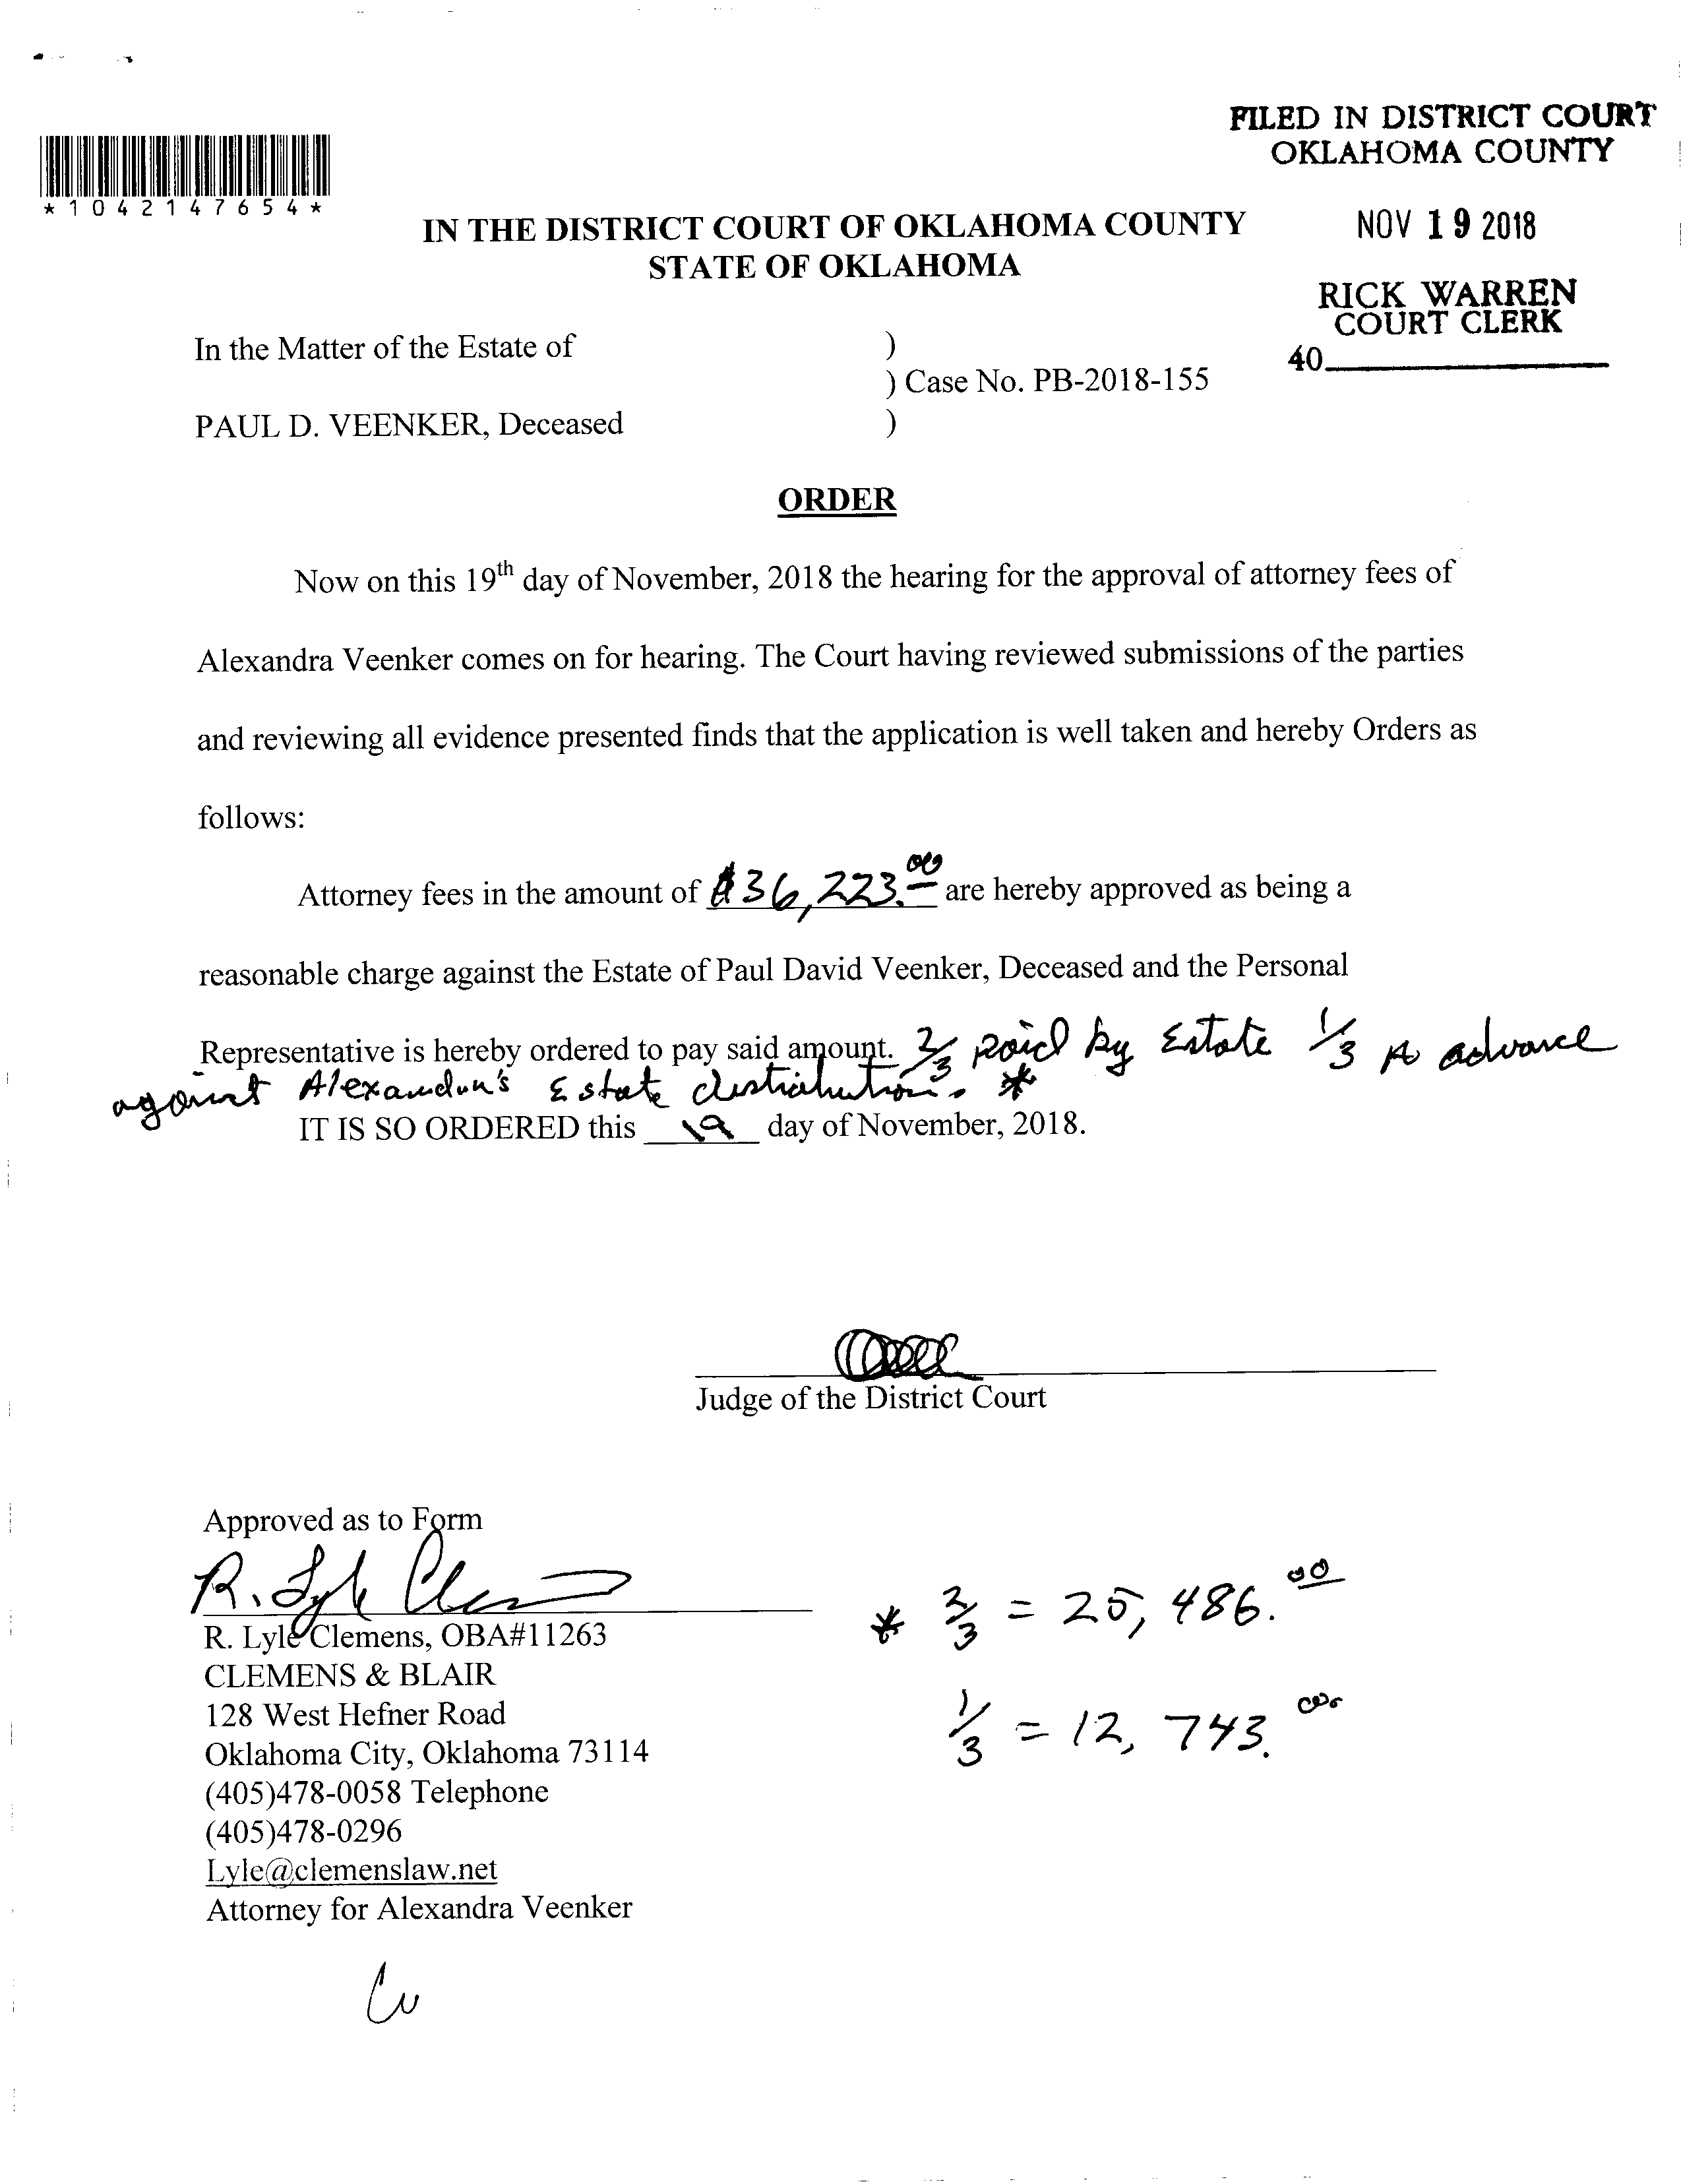 FILED IN DISTRICT COURT
OKLAHOMA COUNTY
*1042147654*
NOV 19 2018
IN THE DISTRICT COURT OF OKLAHOMA COUNTY
STATE OF OKLAHOMA
RICK WARREN
COURT CLERK
40
In the Matter of the Estate of )
) Case No. PB-2018-155
PAUL D. VEENKER, Deceased )
ORDER
Now on this 19th day of November, 2018 the hearing for the approval of attorney fees of
Alexandra Veenker comes on for hearing. The Court having reviewed submissions of the parties
and reviewing all evidence presented finds that the application is well taken and hereby Orders as
follows:
Attorney fees in the amount of $36,223.00 are hereby approved as being a
reasonable charge against the Estate of Paul David Veenker, Deceased and the Personal
Representative is hereby ordered to pay said amount. 2/3 paid by Estate 1/3 advance
against Alexandra's Estate distribution. *
IT IS SO ORDERED this 19 day of November, 2018.
Judge of the District Court
Approved as to Form
R. Lyle Clemens
R. Lyle Clemens, OBA#11263
CLEMENS & BLAIR
128 West Hefner Road
Oklahoma City, Oklahoma 73114
(405)478-0058 Telephone
(405)478-0296
Lyle@clemenslaw.net
Attorney for Alexandra Veenker
* 2/3 = 25,486.00
1/3 = 12,743.00